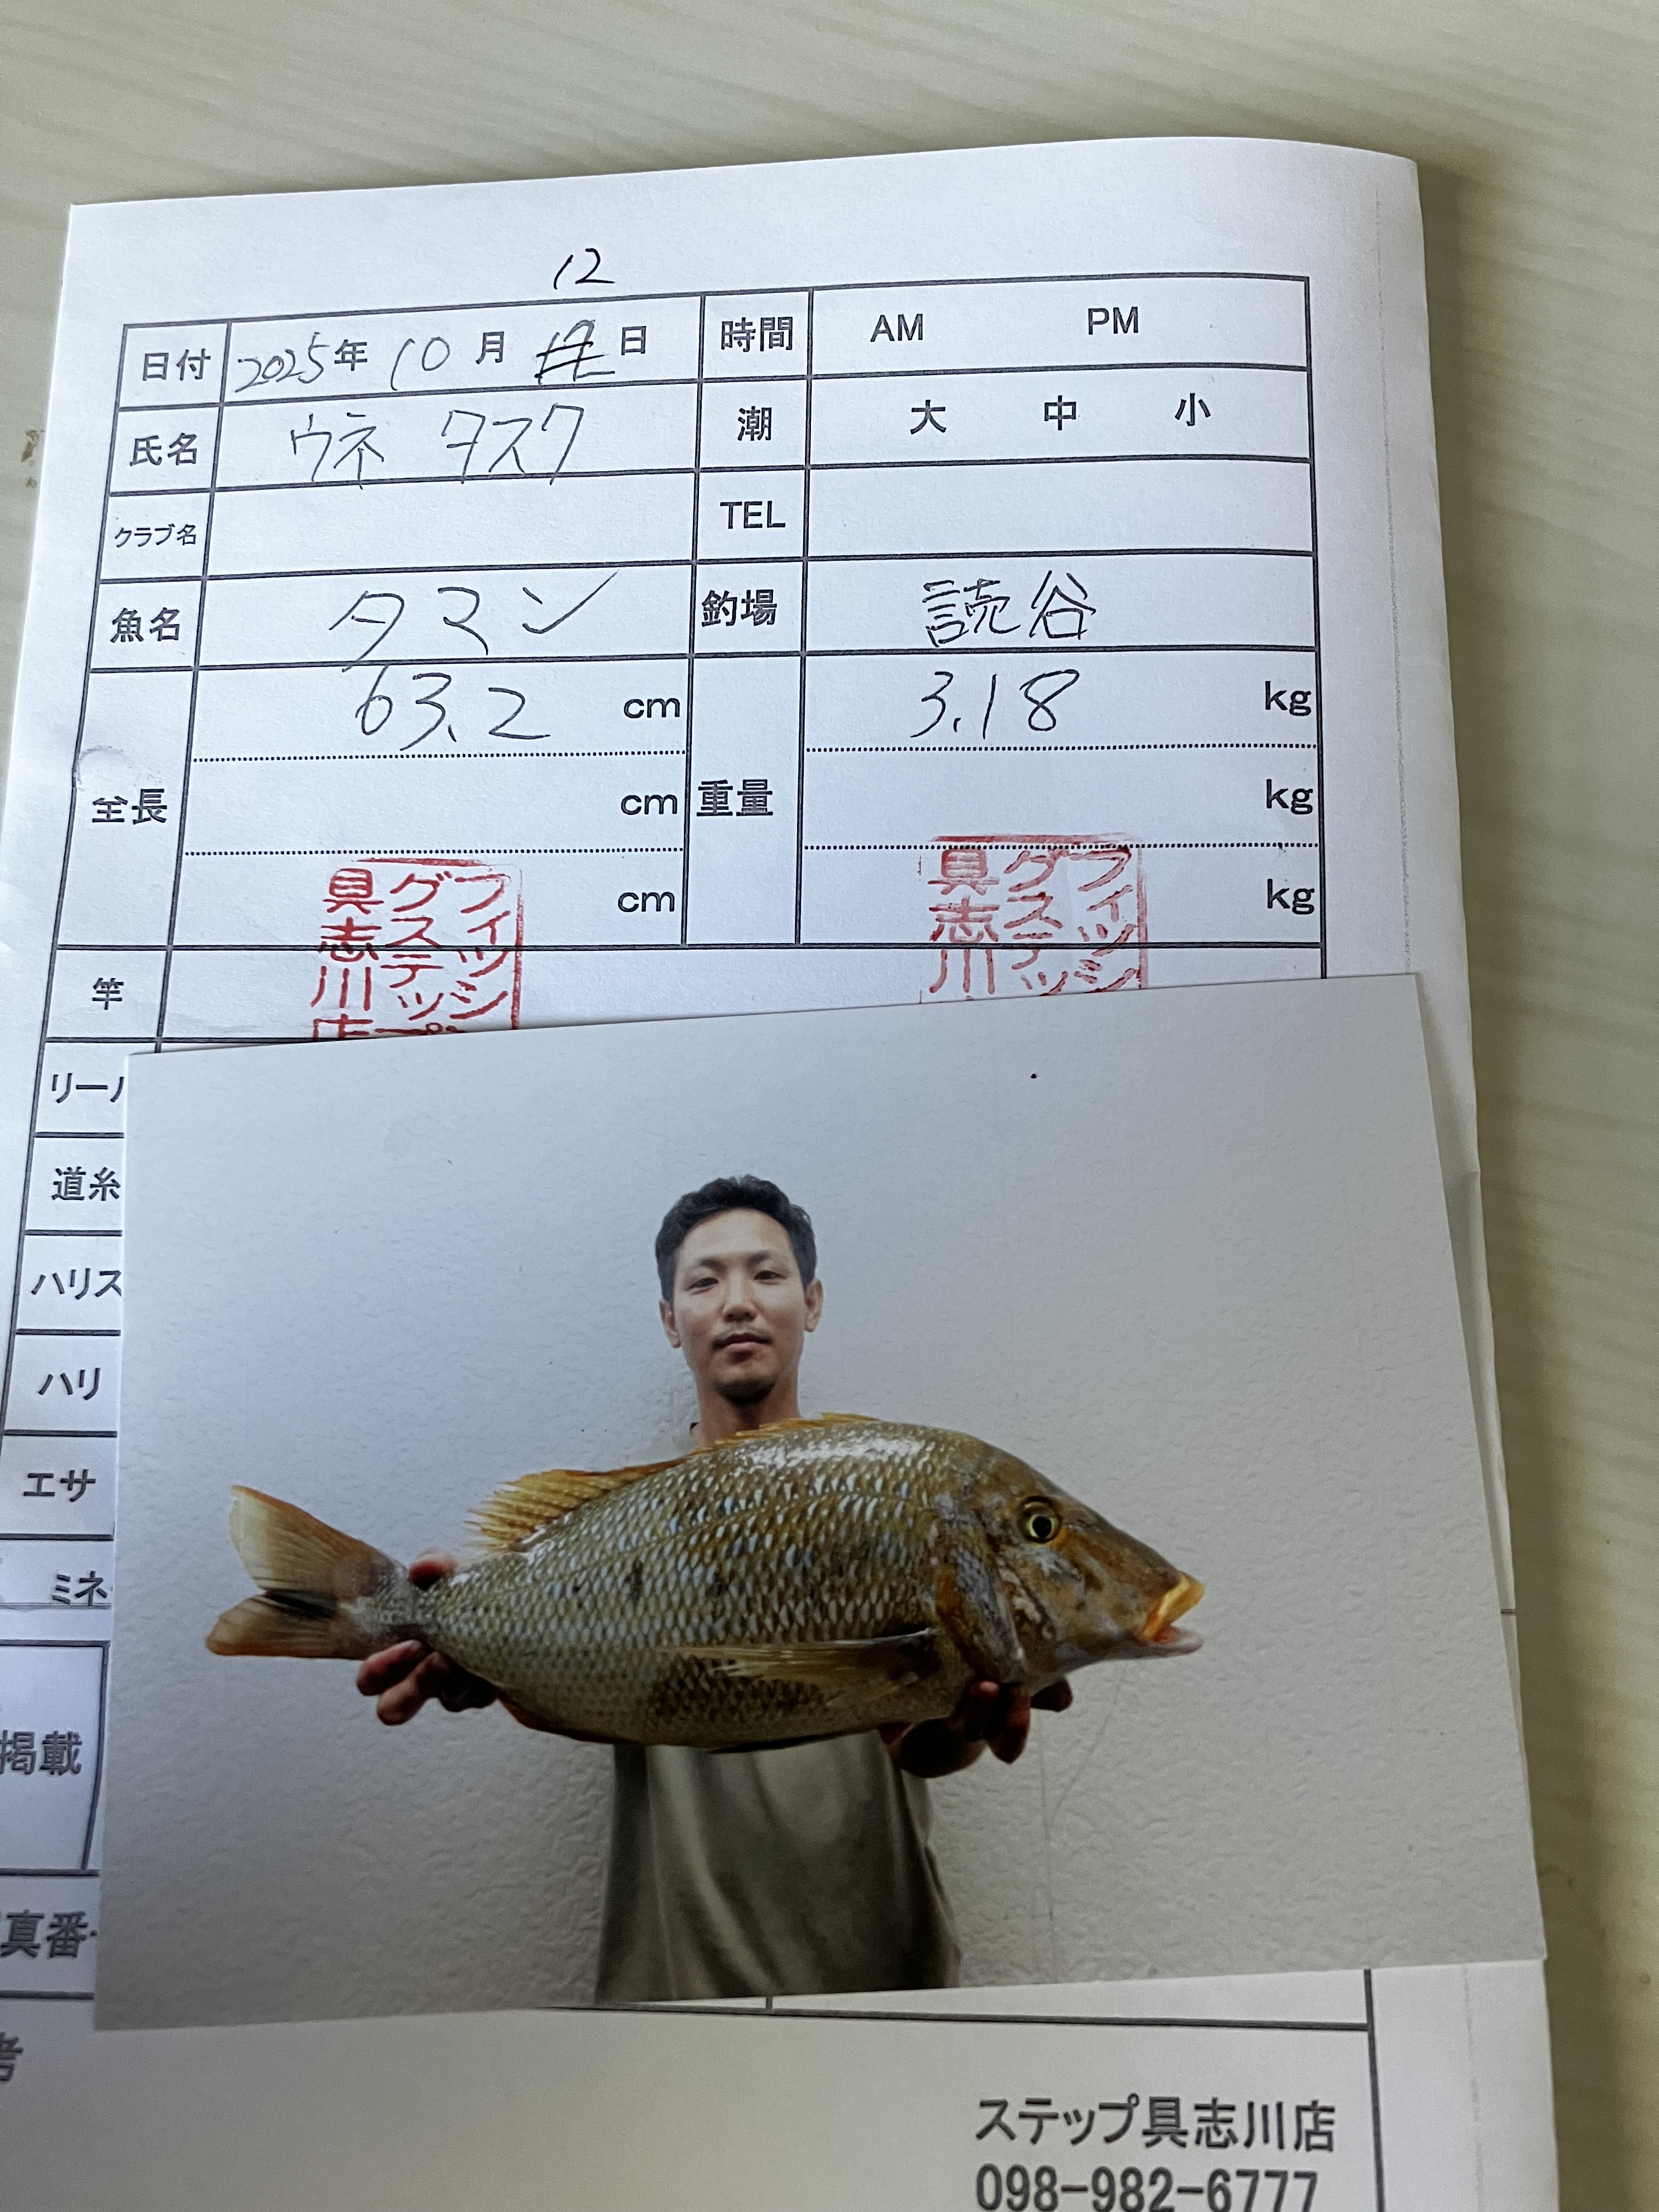 12
日付 2025年 10月 日 時間 AM PM
氏名 ウネ タスク 潮 大 中 小
クラブ名 TEL
魚名 タマン 釣場 読谷
全長 63.2 cm 重量 3.18 kg
cm kg
cm kg
フィッシングステップ具志川店
フィッシングステップ具志川
竿
リール
道糸
ハリス
ハリ
エサ
ミネ
掲載
真番
考
ステップ具志川店
098-982-6777